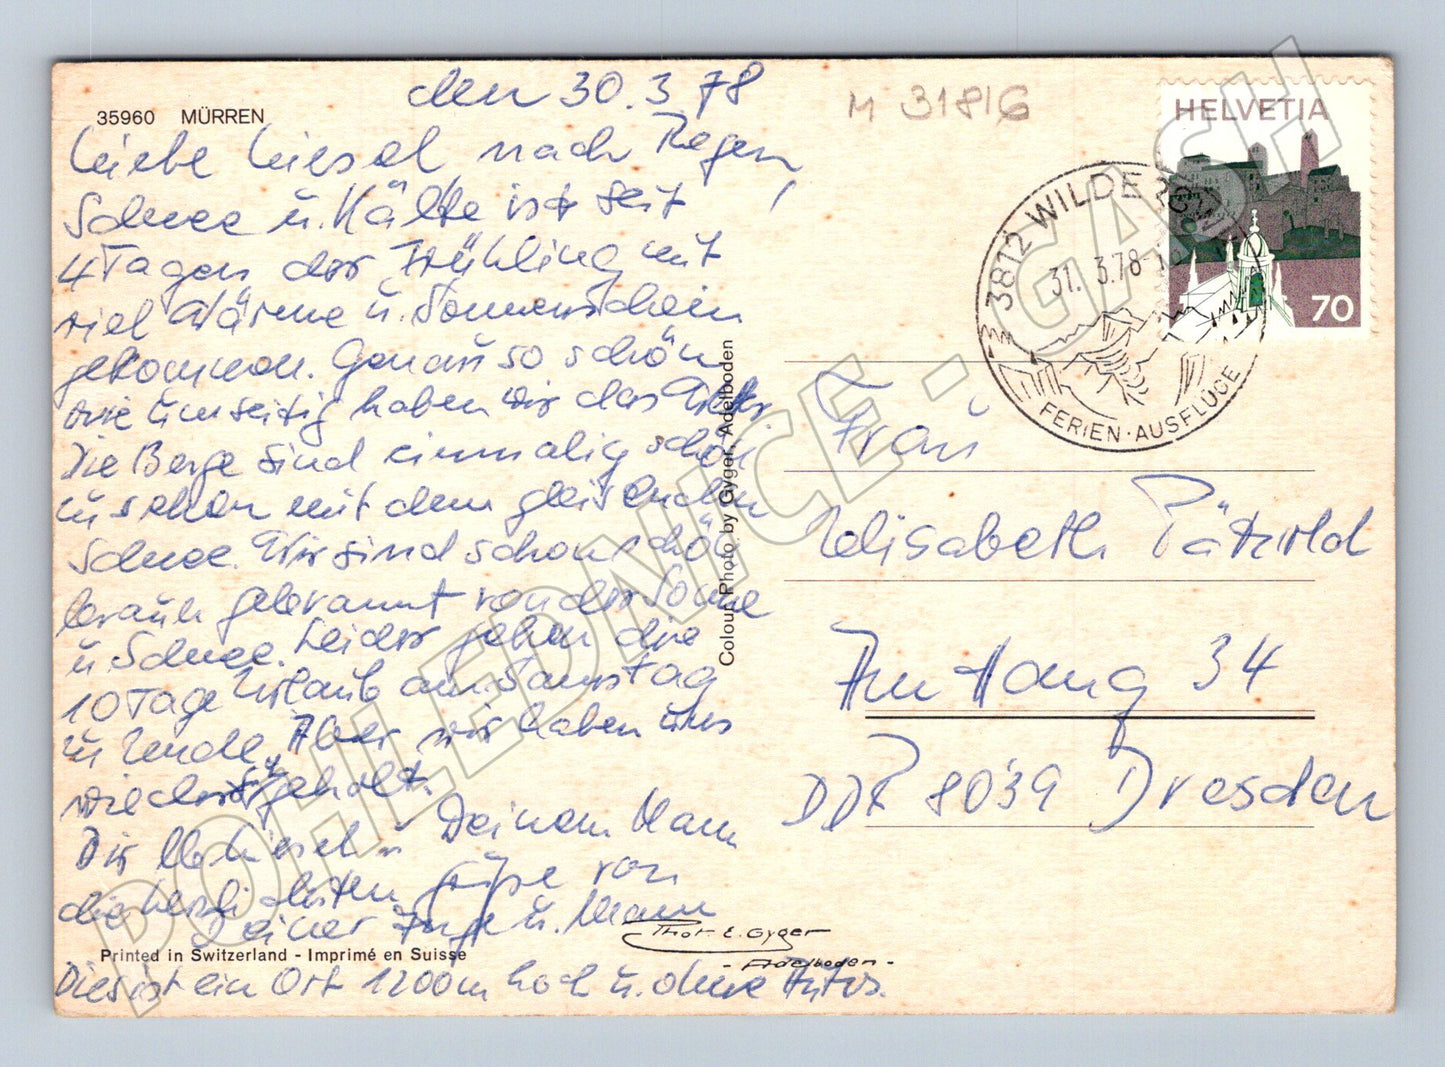 35960 MÜRREN
den 30.3.78
M 31816
HELVETIA
70
3812 WILDERSWIL
31. 3.78
FERIEN·AUSFLÜGE
Liebe Liesel nach Regen,
Schnee u. Kälte ist seit
4 Tagen der Frühling mit
viel Wärme u. Sonnenschein
gekommen. Genau so schön
wie umseitig haben wir das Wetter.
Die Berge sind einmalig schön
zu sehen mit dem gleisenden
Schnee. Wir sind schon schön
braun gebrannt von der Sonne
u. Schnee. Leider gehen die
10 Tage Urlaub am Samstag
zu Ende, Aber wir haben uns
wieder geholt.
Dir lb. Liesel u. Deinem Mann
die herzlichsten Grüße von
Deiner Inge u. Mann
Dies ist ein Ort 1200m hoch u. ohne Autos.
Frau
Elisabeth Pätzold
Am Hang 34
DDR 8039 Dresden
Colour Photo by Gyger, Adelboden
Printed in Switzerland - Imprimé en Suisse
Phot. E. Gyger
- Adelboden -
POHLEDNICE - GASH